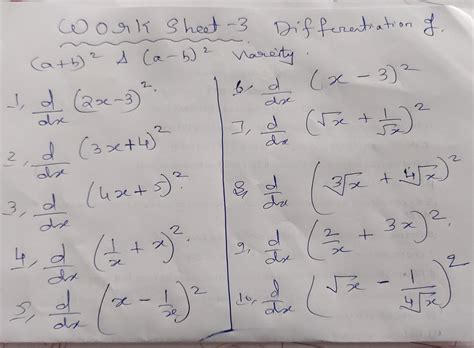 Work Sheet-3. Differentiation of
(a+b)² & (a-b)² Vareity.
1, d/dx (2x-3)².
2, d/dx (3x+4)²
3, d/dx (4x+5)².
4, d/dx (1/x + x)².
5, d/dx (x - 1/x)²
6, d/dx (x - 3)²
7, d/dx (√x + 1/√x)²
8, d/dx (∛x + ∜x)²
9, d/dx (2/x + 3x)².
10, d/dx (√x - 1/∜x)²